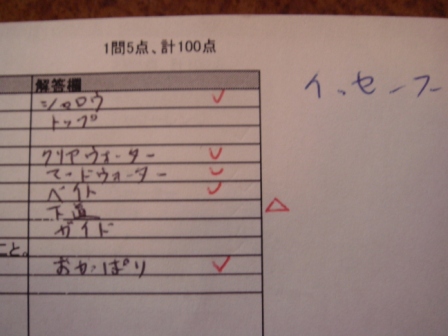 1問5点、計100点
解答欄
シャロウ
トップ
クリアウォーター
マードウォーター
ベイト
下道
ガイド
こと。
おかっぱり